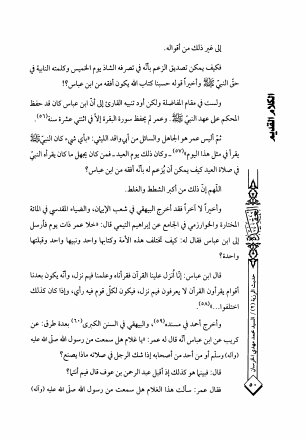 إلى غير ذلك من أقواله.
فكيف يمكن تصديق الزعم بأنّه في تصرفه الشاذ يوم الخميس وكلمته النابية في
حقّ النبي ﷺ وأخيراً قوله حسبنا كتاب الله يكون أفقه من ابن عباس؟!
ولست في مقام المفاضلة ولكن أود تنبيه القارئ إلى أنّ ابن عباس كان قد حفظ
المحكم على عهد النبي ﷺ. وعمر لم يحفظ سورة البقرة إلاّ في اثنتي عشرة سنة(٥٦).
ثمّ أليس عمر هو الجاهل والسائل من أبي واقد الليثي: «بأي شيء كان النبيّ ﷺ
يقرأ في مثل هذا اليوم»(٥٧) ـ وكان ذلك يوم العيد ـ فمن كان يجهل ما كان يقرأه النبيّ
في صلاة العيد كيف يمكن أن يُزعم له بأنّه أفقه من ابن عباس؟
اللّهم إنّ ذلك من أكبر الشطط والغلط.
وأخيراً لا آخراً فقد أخرج البيهقي في شعب الإيمان، والضياء المقدسي في المائة
المختارة والخوارزمي في الجامع عن إبراهيم التيمي قال: «خلا عمر ذات يوم فأرسل
إلى ابن عباس فقال له: كيف تختلف هذه الأمة وكتابها واحد ونبيها واحد وقبلتها
واحدة؟
قال ابن عباس: إنّا نُزل علينا القرآن فقرأناه وعلمنا فيم نزل، وأنّه يكون بعدنا
أقوام يقرأون القرآن لا يعرفون فيم نزل، فيكون لكلّ قوم فيه رأي، وإذا كان كذلك
اختلفوا...»(٥٨).
وأخرج أحمد في مسنده(٥٩)، والبيهقي في السنن الكبرى(٦٠) بعدة طرق: عن
كريب عن ابن عباس أنّه قال له عمر: «يا غلام هل سمعت من رسول الله صلّى الله عليه
(وآله) وسلّم أو من أحد من أصحابه إذا شك الرجل في صلاته ماذا يصنع؟
قال: فبينما هو كذلك إذ أقبل عبد الرحمن بن عوف قال فيم أنتما؟
فقال عمر: سألت هذا الغلام هل سمعت من رسول الله صلّى الله عليه (وآله)
الكلام القديم
العقيدة
حديث الرزية (٢) / السيد محمد مهدي الخرسان
٥٠